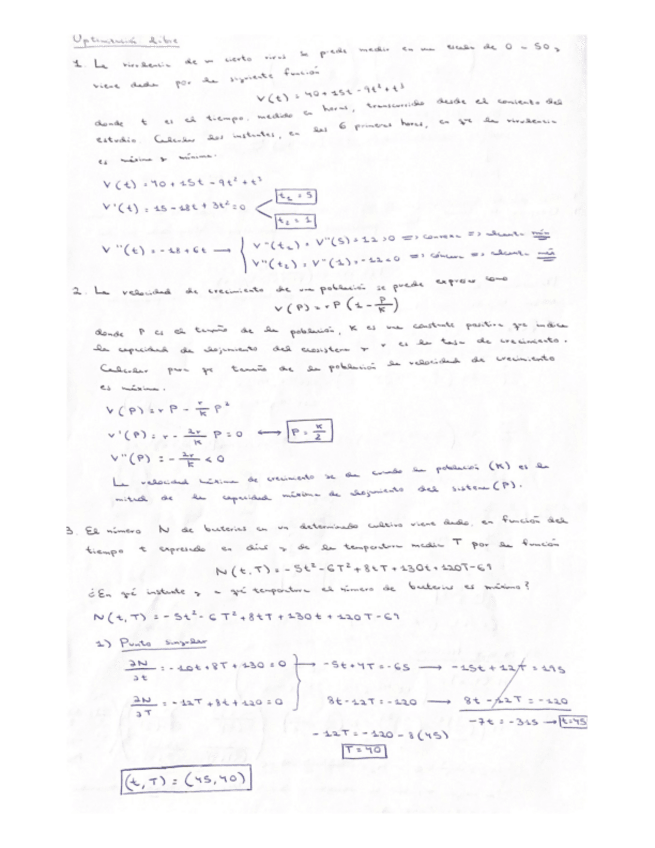 Optimización libre
1. La virulencia de un cierto virus se puede medir en una escala de 0 a 50 y
viene dada por la siguiente función
V(t) = 40 + 15t - 9t² + t³
donde t es el tiempo, medido en horas, transcurrido desde el comienzo del
estudio. Calcular los instantes, en las 6 primeras horas, en que la virulencia
es máxima y mínima.
V(t) = 40 + 15t - 9t² + t³
t₁ = 5
V'(t) = 15 - 18t + 3t² = 0
t₂ = 1
V''(t) = -18 + 6t → V''(t₁) = V''(5) = 12 > 0 => convexa => mín
V''(t₂) = V''(1) = -12 < 0 => cóncava => máx
2. La velocidad de crecimiento de una población se puede expresar como
V(P) = rP (1 - P/K)
donde P es el tamaño de la población, K es una constante positiva que indica
la capacidad de alojamiento del ecosistema y r es la tasa de crecimiento.
Calcular para qué tamaño de la población la velocidad de crecimiento
es máxima.
V(P) = rP - r/K P²
V'(P) = r - 2r/K P = 0 ⟷ P = K/2
V''(P) = - 2r/K < 0
La velocidad máxima de crecimiento se da cuando la población (K) es la
mitad de la capacidad máxima de alojamiento del sistema (P).
3. El número N de bacterias en un determinado cultivo viene dado, en función del
tiempo t expresado en días y de la temperatura media T por la función
N(t,T) = -5t² - 6T² + 8tT + 130t + 120T - 61
¿En qué instante y a qué temperatura el número de bacterias es máximo?
N(t,T) = -5t² - 6T² + 8tT + 130t + 120T - 61
1) Punto singular
∂N/∂t = -10t + 8T + 130 = 0 → -5t + 4T = -65 → -15t + 12T = 195
∂N/∂T = -12T + 8t + 120 = 0 8t - 12T = -120 → 8t - 12T = -120
-7t = -315 → t=45
-12T = -120 - 8(45)
T = 40
(t,T) = (45,40)